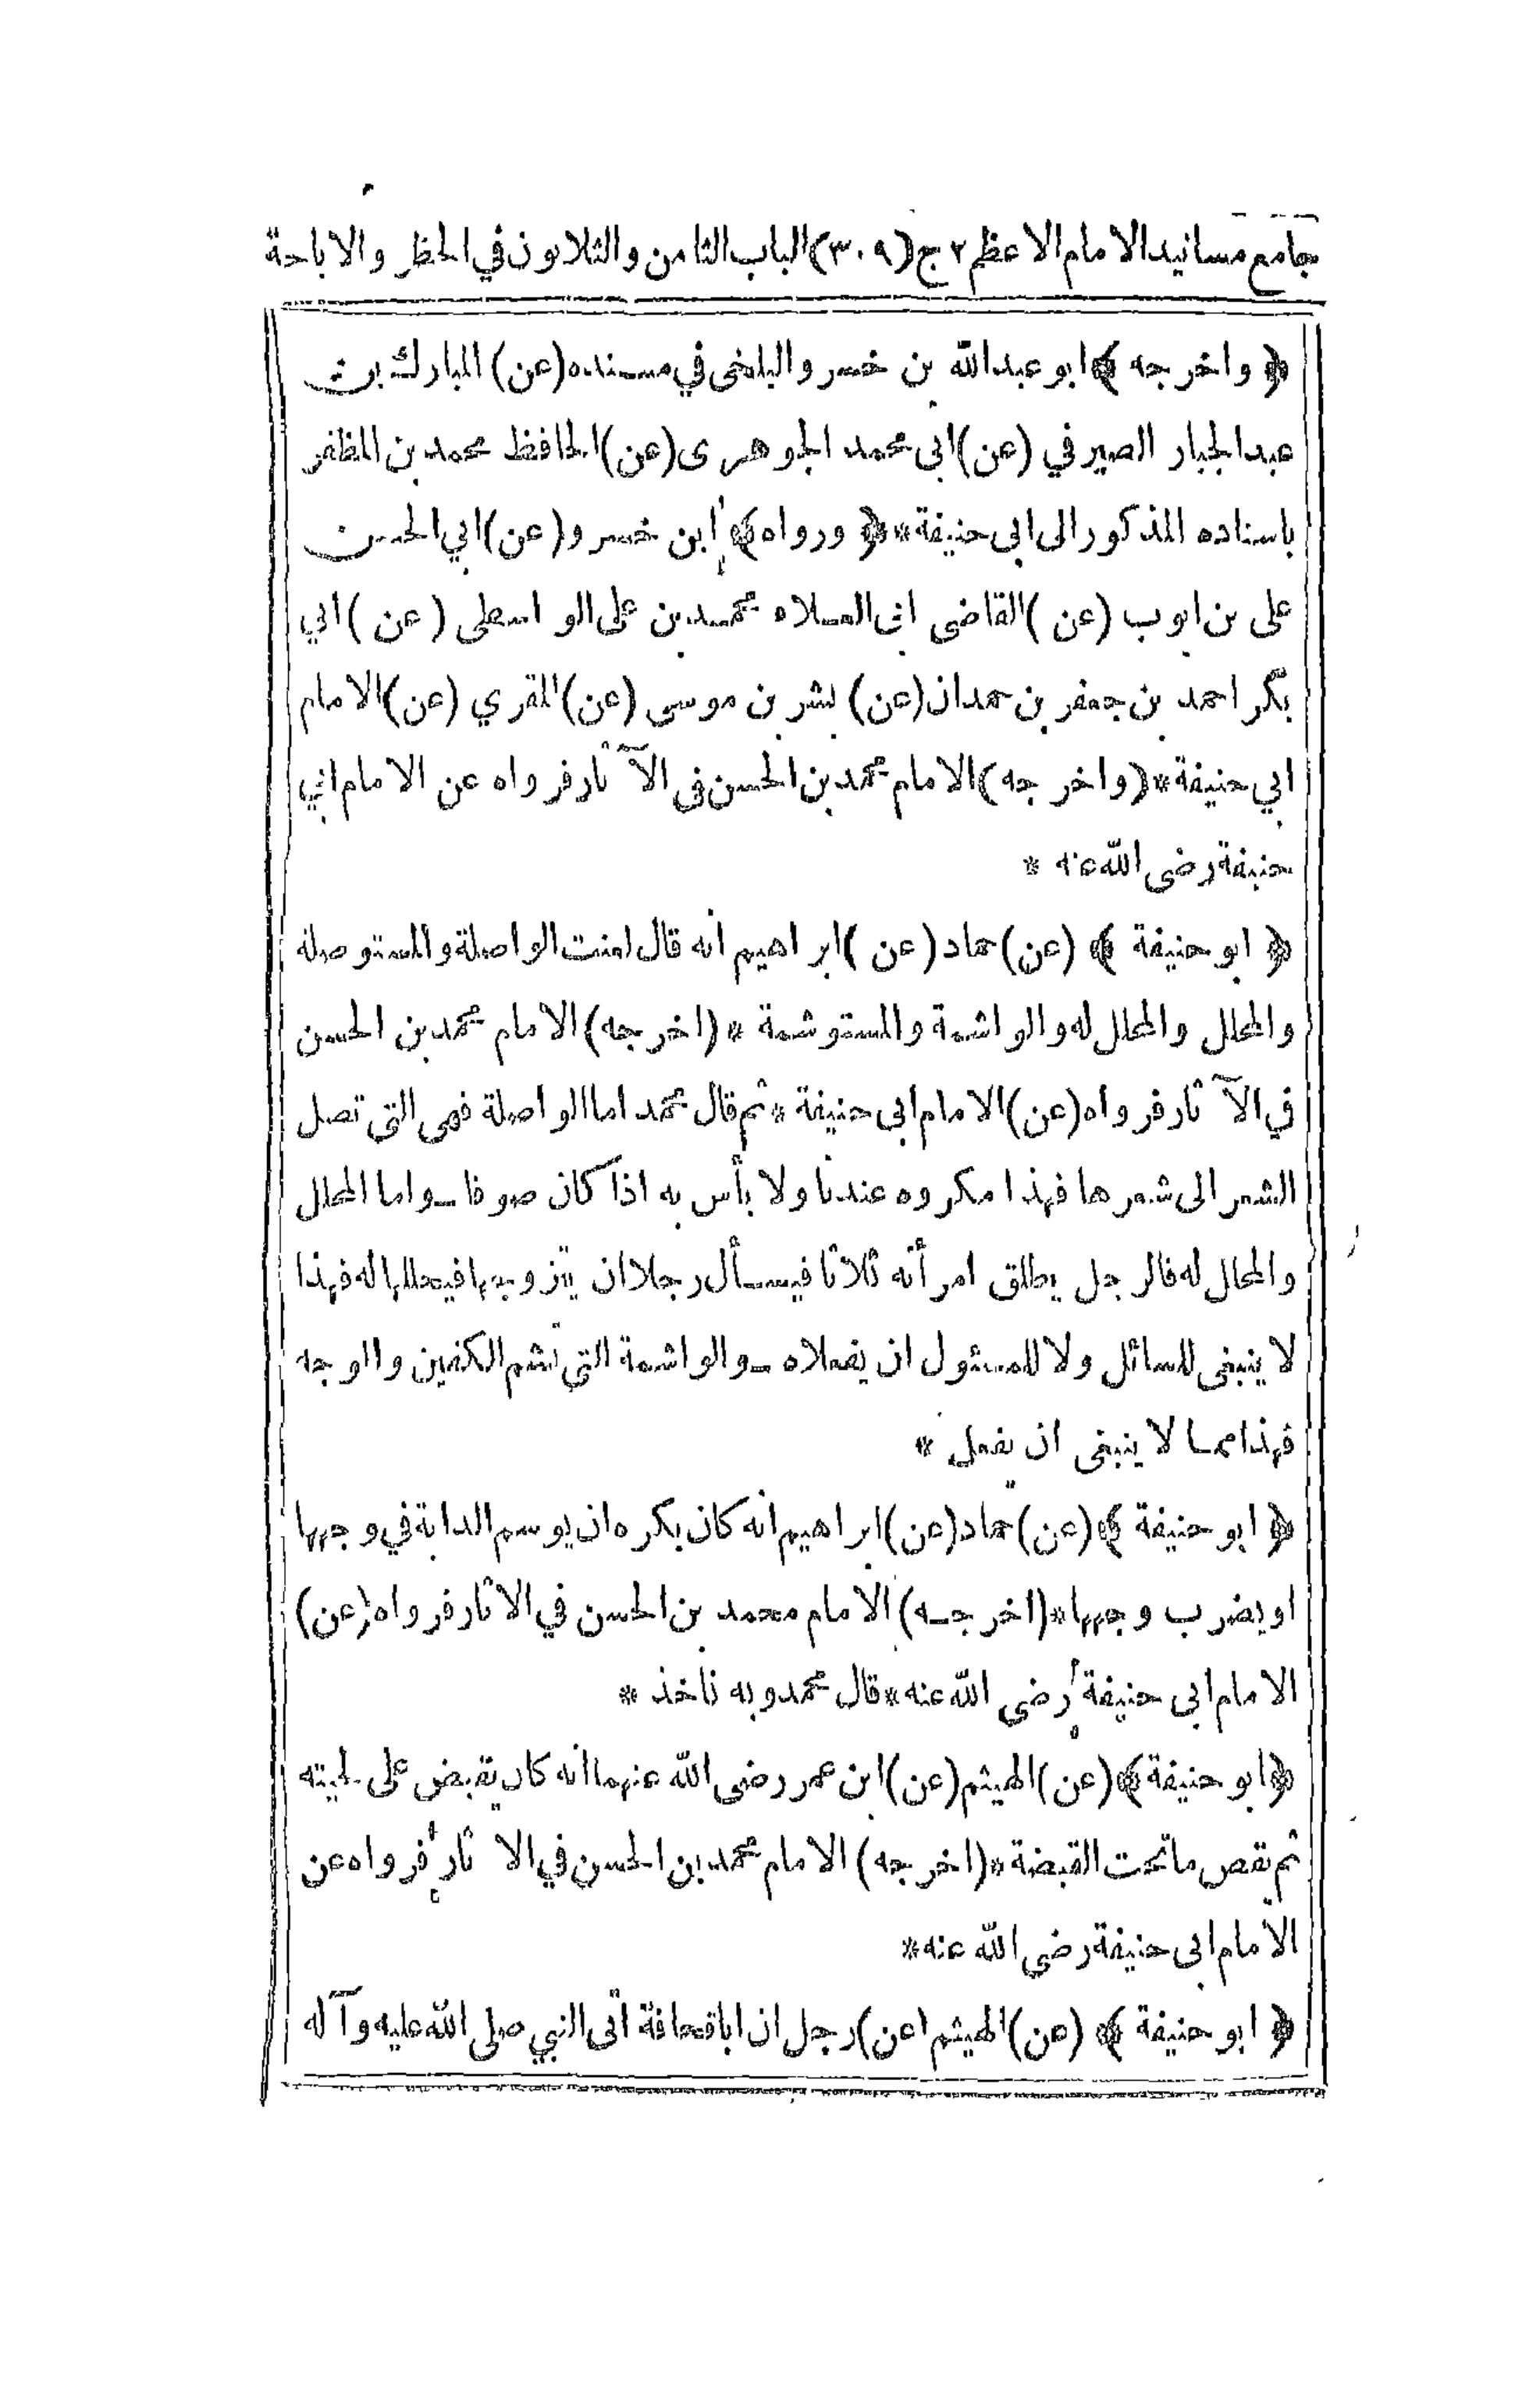 جامع مسانيد الامام الاعظم ٢ ج (٣٠٩) الباب الثامن والثلاثون في الحظر والاباحة
﴿ واخرجه ﴾ ابو عبد الله بن خسرو البلخى في مسنده (عن) المبارك بن
عبد الجبار الصيرفي (عن) ابى محمد الجوهرى (عن) الحافظ محمد بن المظفر
باسناده المذكور الى ابى حنيفة * ﴿ ورواه ﴾ ابن خسرو (عن) ابي الحسن
على بن ايوب (عن) القاضى ابى العلاء محمد بن على الواسطى (عن) ابي
بكر احمد بن جعفر بن حمدان (عن) بشر بن موسى (عن) المقري (عن) الامام
ابي حنيفة * (واخرجه) الامام محمد بن الحسن فى الآثار فرواه عن الامام ابي
حنيفة رضى الله عنه *
﴿ ابو حنيفة ﴾ (عن) حماد (عن) ابراهيم انه قال لعنت الواصلة والمستوصلة
والمحلل والمحلل له والواشمة والمستوشمة * (اخرجه) الامام محمد بن الحسن
في الآثار فرواه (عن) الامام ابى حنيفة * ثم قال محمد اما الواصلة فهى التى تصل
الشعر الى شعرها فهذا مكروه عندنا ولا بأس به اذا كان صوفا ــ واما المحلل
والمحلل له فالرجل يطلق امرأته ثلاثا فيسأل رجلا ان يتزوجها فيحللها له فهذا
لا ينبغى للسائل ولا للمسئول ان يفعلاه ــ والواشمة التى تشم الكفين والوجه
فهذا مما لا ينبغى ان يفعل *
﴿ ابو حنيفة ﴾ (عن) حماد (عن) ابراهيم انه كان يكره ان يوسم الدابة في وجهها
او يضرب وجهها * (اخرجه) الامام محمد بن الحسن في الاثار فرواه (عن)
الامام ابى حنيفة رضى الله عنه * قال محمد وبه ناخذ *
﴿ ابو حنيفة ﴾ (عن) الهيثم (عن) ابن عمر رضى الله عنهما انه كان يقبض على لحيته
ثم يقص ما تحت القبضة * (اخرجه) الامام محمد بن الحسن في الاثار فرواه عن
الامام ابى حنيفة رضى الله عنه *
﴿ ابو حنيفة ﴾ (عن) الهيثم (عن) رجل ان ابا قحافة اتى النبي صلى الله عليه وآله